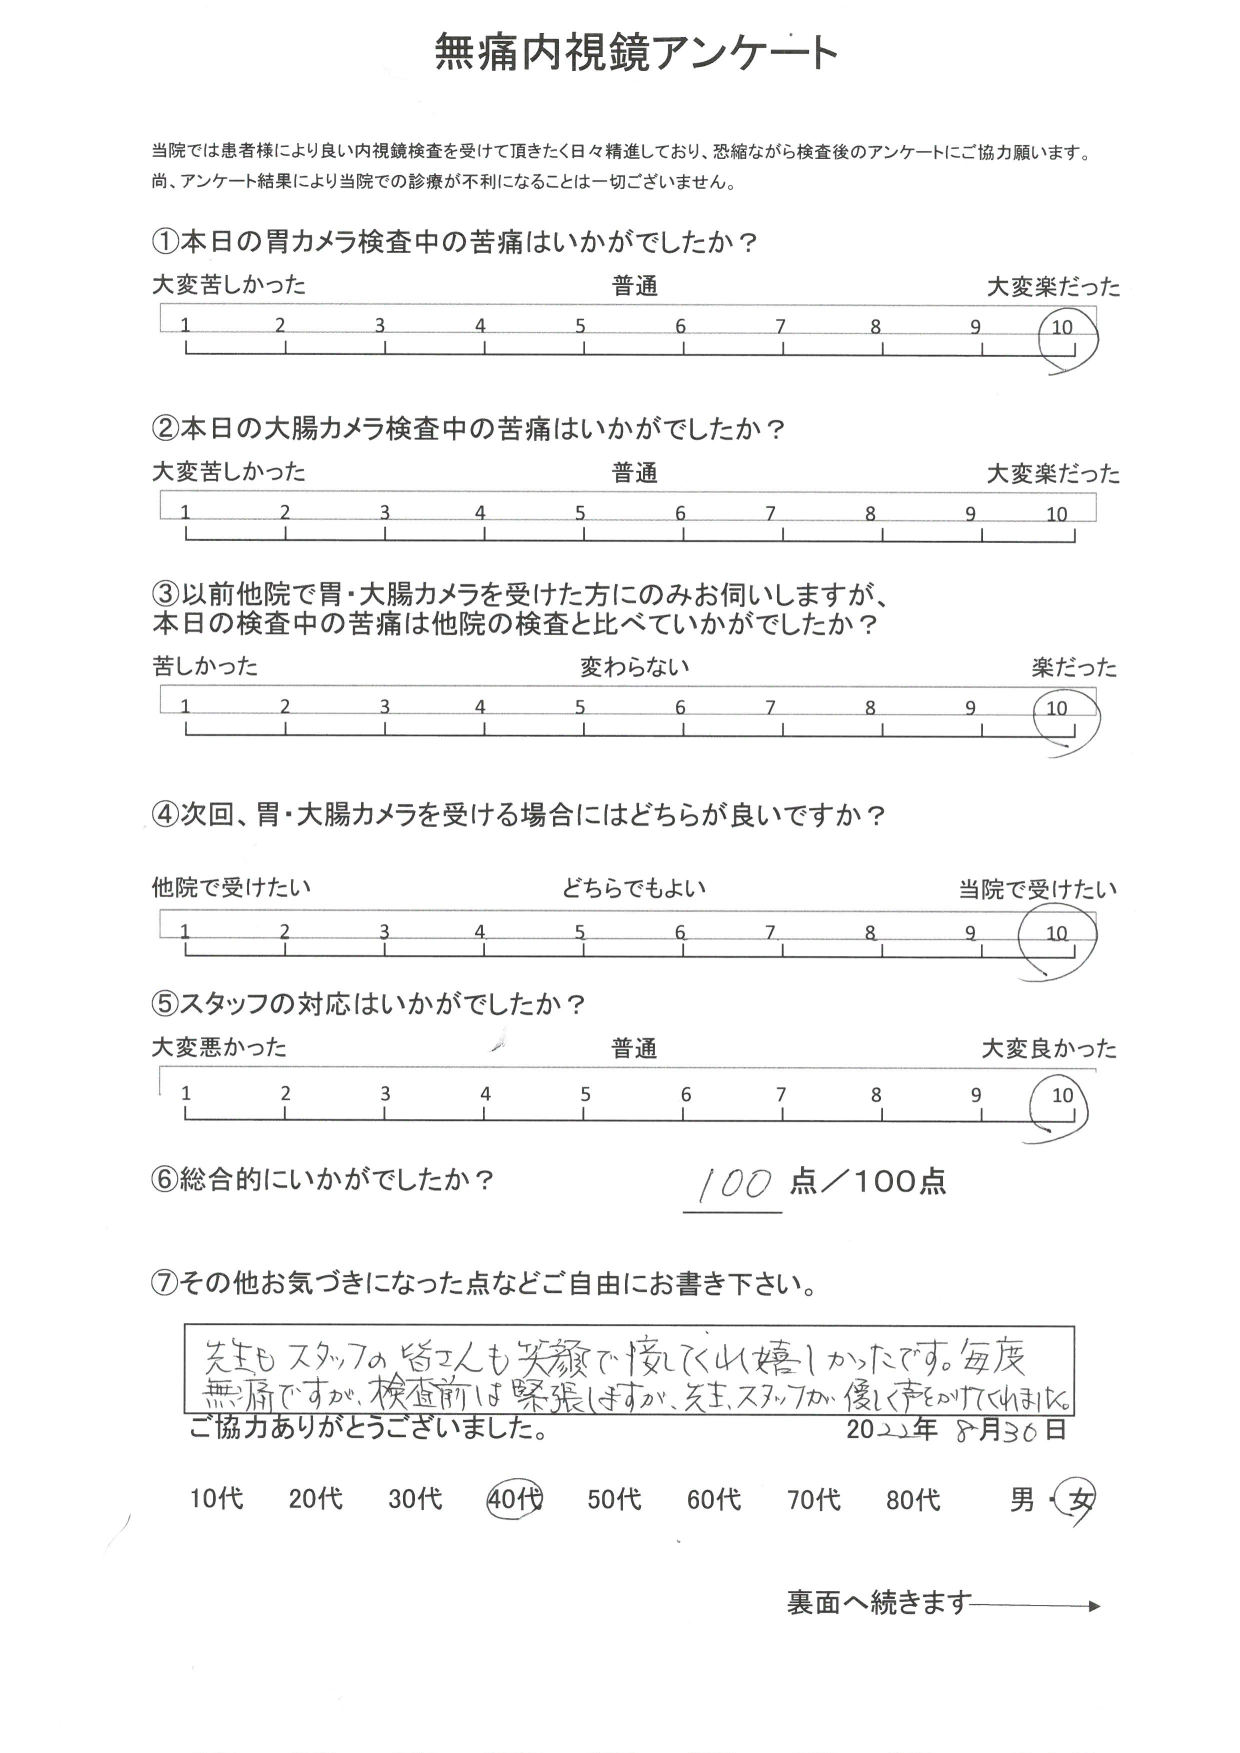 無痛内視鏡アンケート
当院では患者様により良い内視鏡検査を受けて頂きたく日々精進しており、恐縮ながら検査後のアンケートにご協力願います。
尚、アンケート結果により当院での診療が不利になることは一切ございません。
①本日の胃カメラ検査中の苦痛はいかがでしたか？
大変苦しかった 普通 大変楽だった
1 2 3 4 5 6 7 8 9 10
②本日の大腸カメラ検査中の苦痛はいかがでしたか？
大変苦しかった 普通 大変楽だった
1 2 3 4 5 6 7 8 9 10
③以前他院で胃・大腸カメラを受けた方にのみお伺いしますが、
本日の検査中の苦痛は他院の検査と比べていかがでしたか？
苦しかった 変わらない 楽だった
1 2 3 4 5 6 7 8 9 10
④次回、胃・大腸カメラを受ける場合にはどちらが良いですか？
他院で受けたい どちらでもよい 当院で受けたい
1 2 3 4 5 6 7 8 9 10
⑤スタッフの対応はいかがでしたか？
大変悪かった 普通 大変良かった
1 2 3 4 5 6 7 8 9 10
⑥総合的にいかがでしたか？ 100 点／100点
⑦その他お気づきになった点などご自由にお書き下さい。
先生もスタッフの皆さんも笑顔で接してくれ嬉しかったです。毎度
無痛ですが、検査前は緊張しますが、先生、スタッフが優しく声をかけてくれました。
ご協力ありがとうございました。 2022年 8月30日
10代 20代 30代 40代 50代 60代 70代 80代 男・女
裏面へ続きます